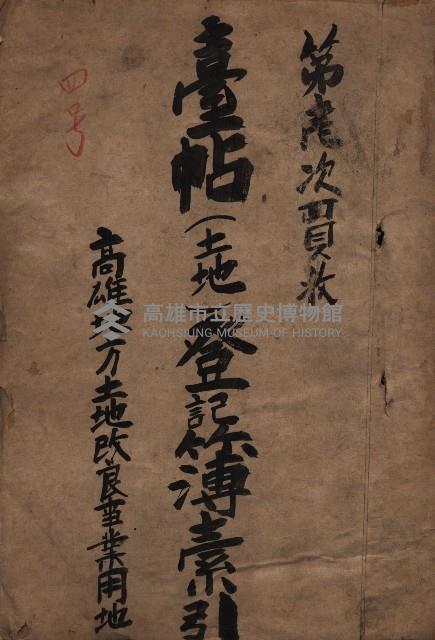 第壱次買收
臺帖(土地)登記簿索引
高雄地方土地改良事業用地
四号
高雄市立歷史博物館
KAOHSIUNG MUSEUM OF HISTORY